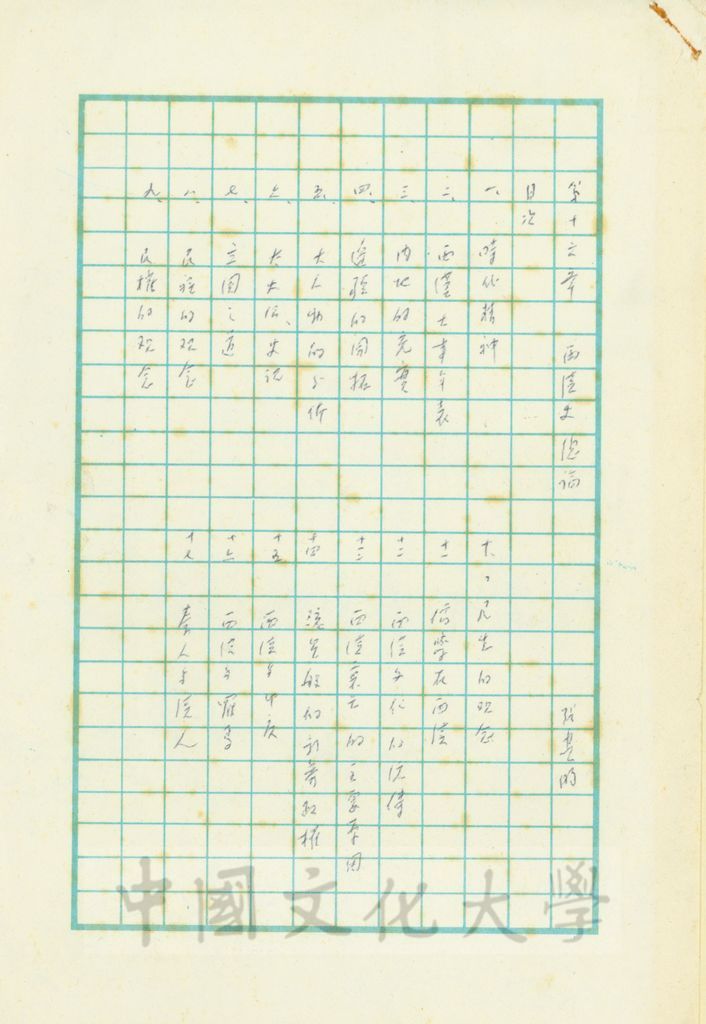 第十六章 西漢史總論 張其昀
目次
一、時代精神
二、西漢大事年表
三、內地的充實
四、邊疆的開拓
五、大人物的分析
六、太史公史記
七、立國之道
八、民族的观念
九、民權的观念
十、民生的观念
十一 儒學在西漢
十二 西漢文化的優
十三 西漢衰亡的主要原因
十四 的新莽
十五 西漢與
十六 西漢與羅馬
十七 秦人與漢人
中國文化大學